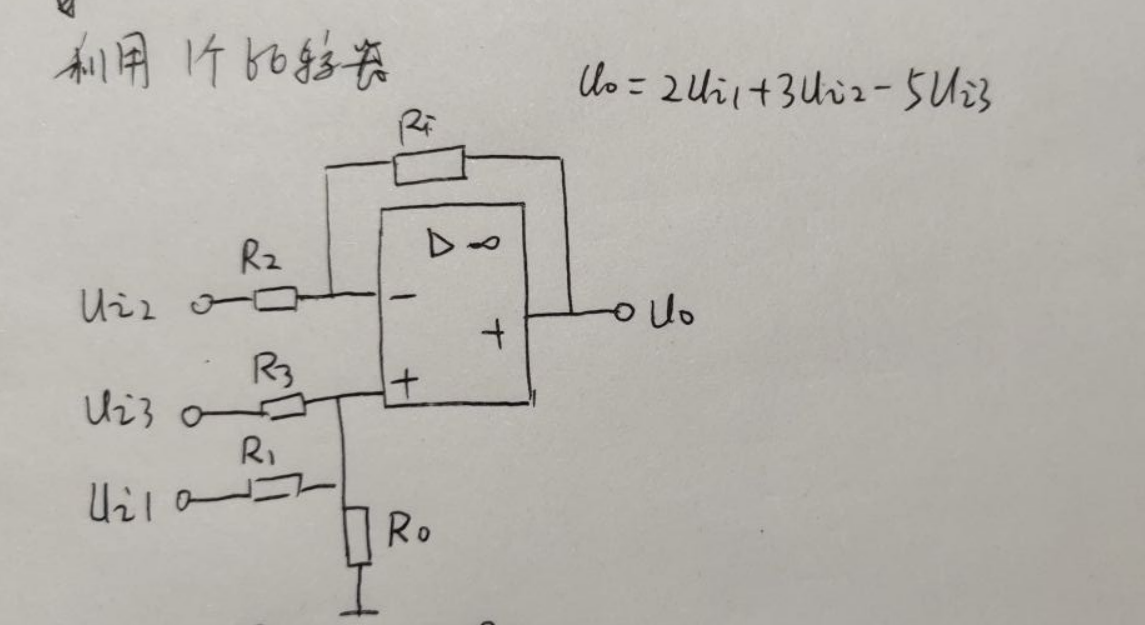 利用1个比较器
Uo = 2Ui1 + 3Ui2 - 5Ui3
Rf
▷ ∞
R2
Ui2
-
+
Uo
R3
+
Ui3
R1
Ui1
Ro